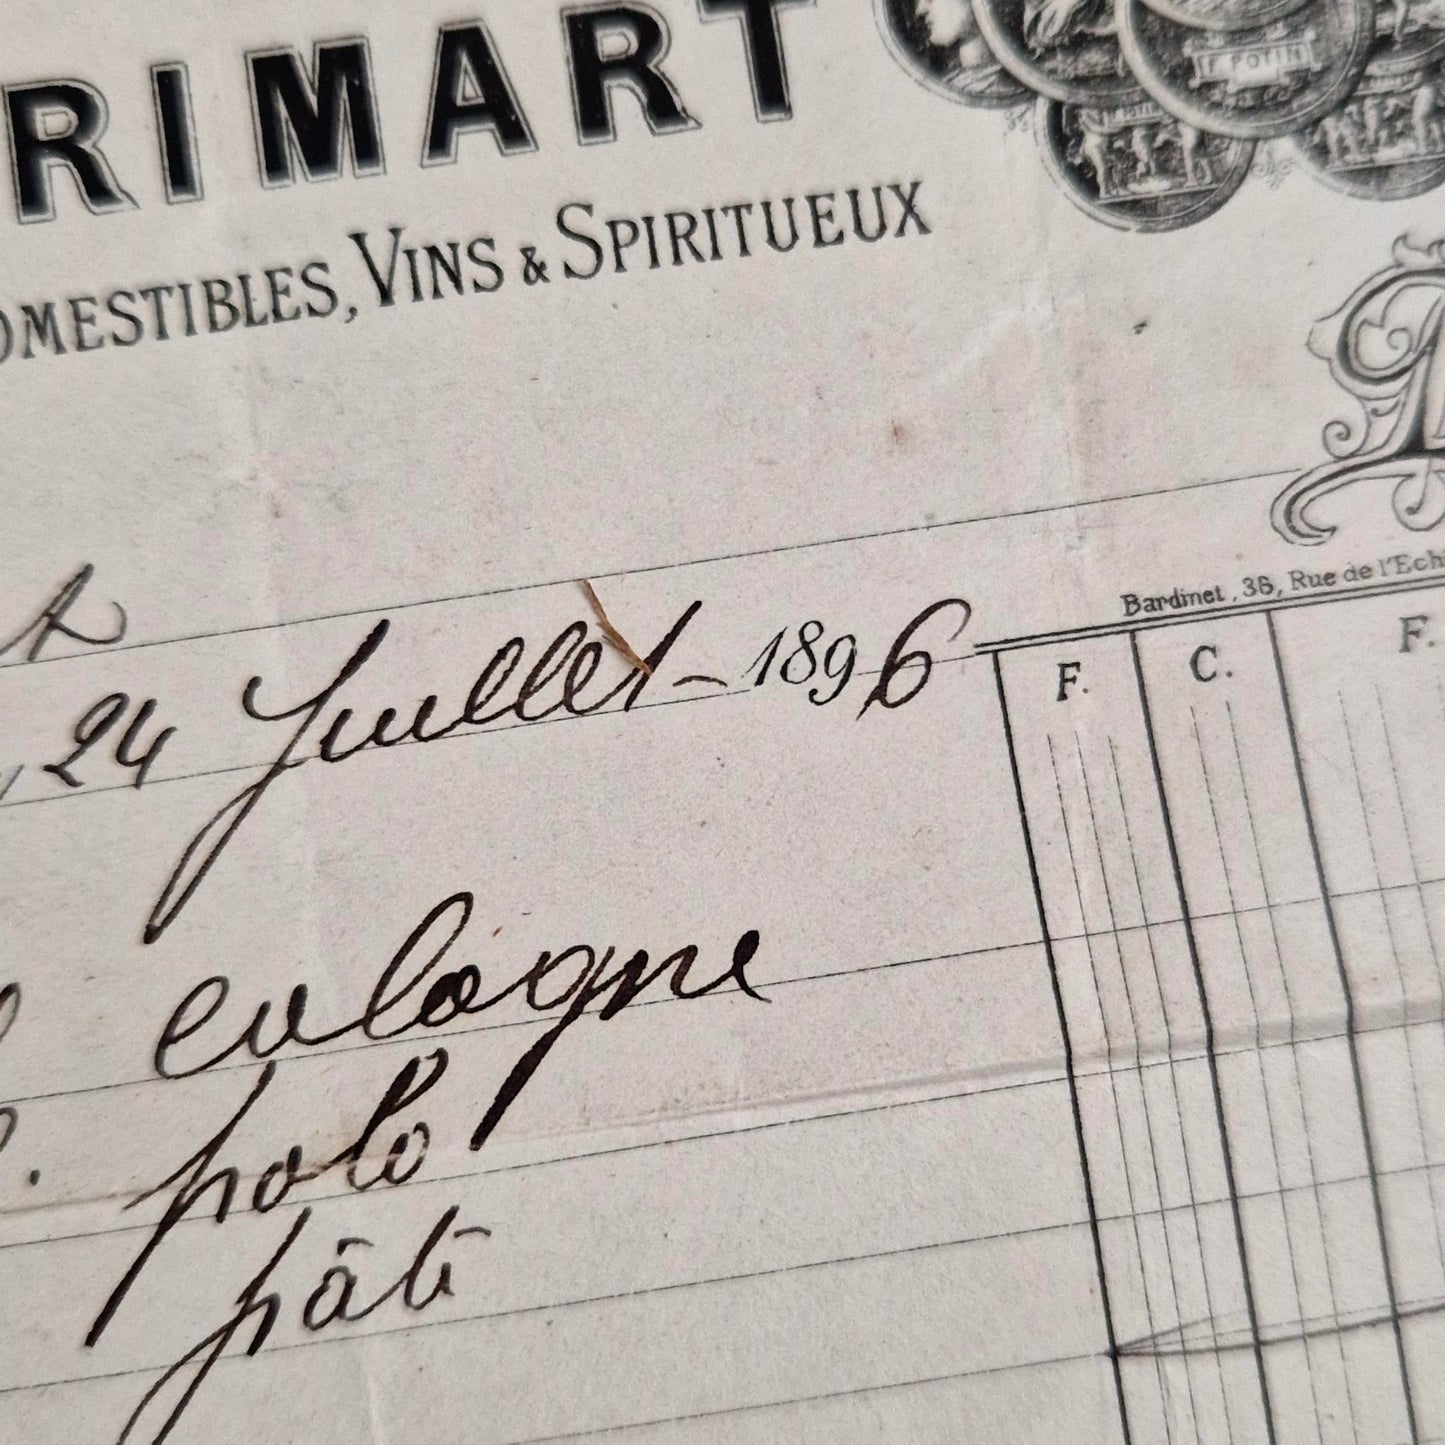 RIMART
F. POTIN
OMESTIBLES, VINS & SPIRITUEUX
Bardinet, 36, Rue de l'Ech
24 Juillet - 1896
F. C. F.
cologne
polo
pâté